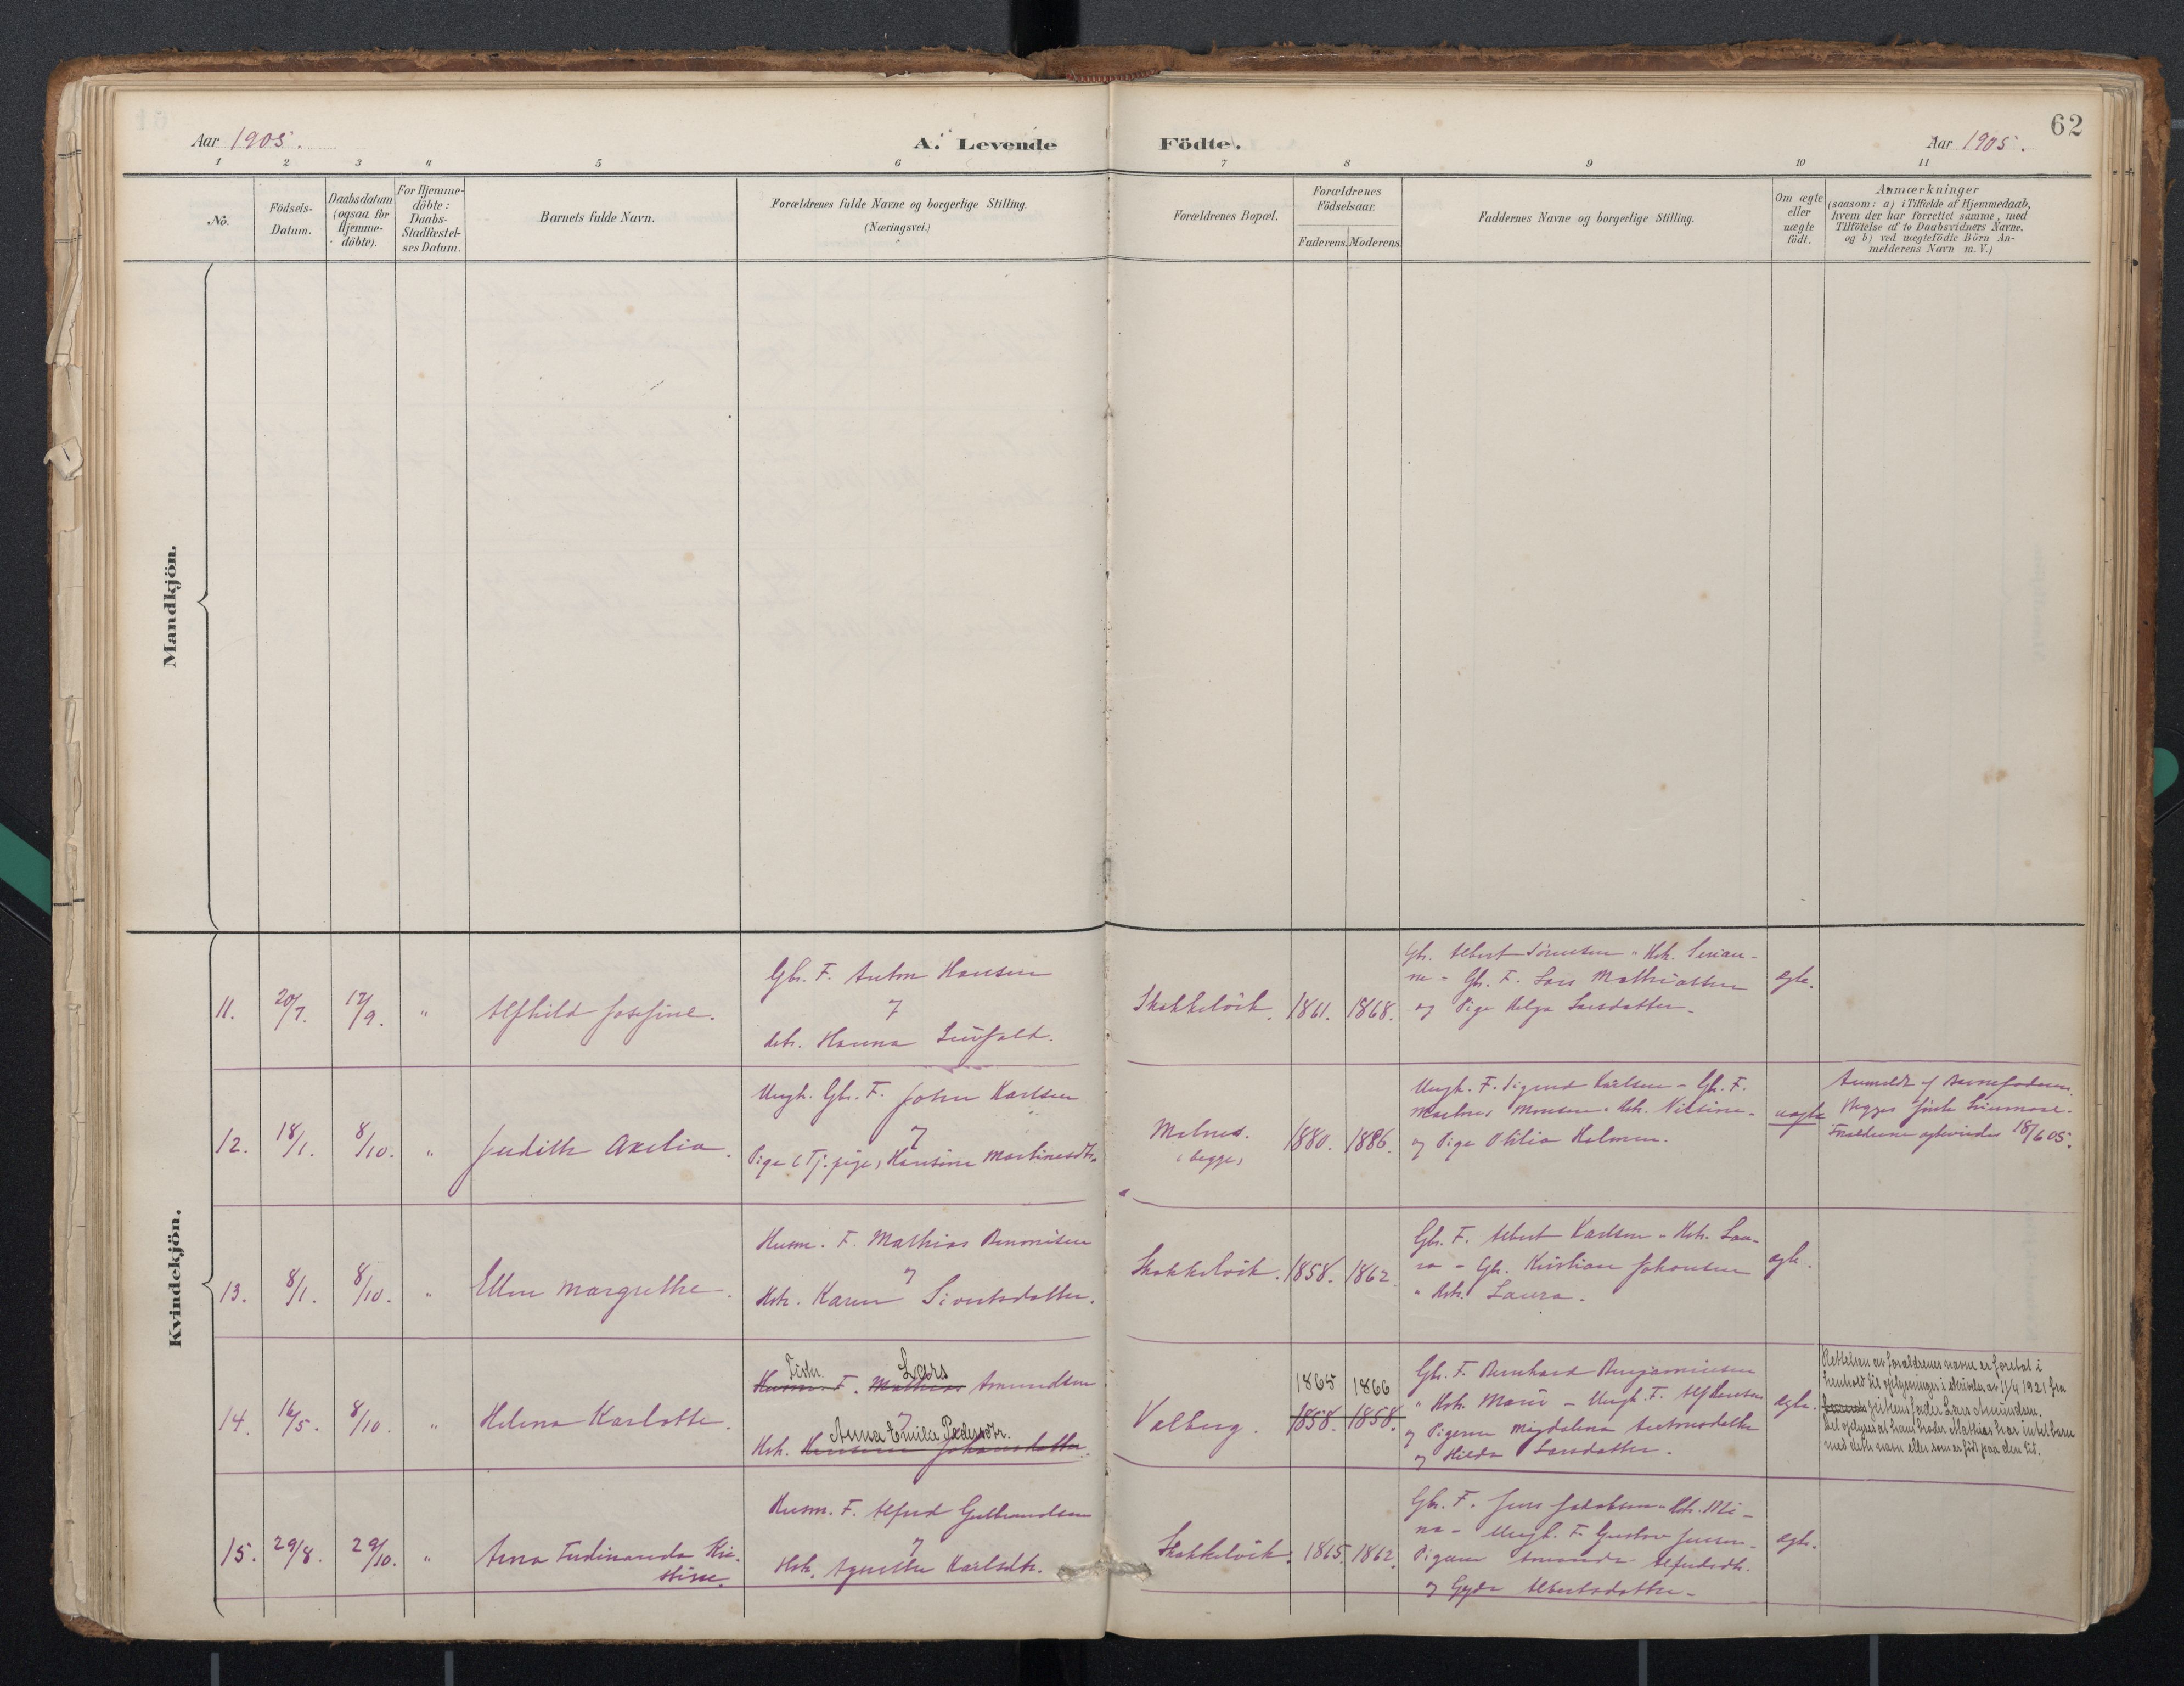 62
Aar 1905.
A. Levende Födte.
Aar 1905.
1 2 3 4 5 6 7 8 9 10 11
No.
Födsels-
Datum.
Daabsdatum
(ogsaa for
Hjemme-
döbte).
For Hjemme-
döbte:
Daabs-
Stadfæstel-
ses Datum.
Barnets fulde Navn.
Forældrenes fulde Navne og borgerlige Stilling.
(Næringsvei.)
Forældrenes Bopæl.
Forældrenes
Födselsaar.
Faderens. Moderens.
Faddernes Navne og borgerlige Stilling.
Om ægte
eller
uægte
födt.
Anmærkninger
(saasom: a) i Tilfælde af Hjemmedaab,
hvem der har forrettet samme, med
Tilföielse af to Daabsvidners Navne.
og b) ved uægtefödte Börn An-
melderens Navn m. V.)
Mandkjön.
Kvindekjön.
11. 20/7. 17/9. " Alfhild Josefine.
Gbr. F. Anton Hansen
Hanna
1861. 1868.
Gbr. Albert Sörensen
Gbr. F. Lars Mathiassen
og Pige Helga Larsdatter.
ægte.
12. 18/1. 8/10. " Judith Axelia.
Ungk. Gbr. F. John Karlsen
Pige (Tj.pige) Hansine Martinesdtr.
Malnes.
(begge)
1880. 1886.
Ungk. F. Sigurd Karlsen - Gbr. F.
og Pige Otilia Holmen.
uægte
Anmeldt af Barnefaderen.
18/6 05.
13. 8/1. 8/10. " Ellen Margrethe.
Husm. F. Mathias
Hstr. Karen Sivertsdatter.
1858. 1862.
Gbr. F. Albert Karlsen - Hstr. Lau-
ra - Gbr. Kristian Johansen
" Hstr. Laura.
ægte.
14. 16/5. 8/10. " Helena Karlotte.
Fisker. Lars
Husm. F. Mathias Amundsen
Anna Emilie Pedersdtr.
Hstr. Johansdatter.
Valberg.
1865 1866
1858. 1858.
Gbr. F. Bernhard Benjaminsen
" Hstr. Marie - Ungk. F. Alf Hansen
og Pigerne Magdalena Antonsdatter
og Hilda Larsdatter.
ægte.
Rettelsen av forældrenes navn er foretat i
henhold til oplysninger i skrivelse av 11/4 1921 fra
pikens fader Lars Amundsen.
Det oplyses at hans broder Mathias har intet barn
med dette navn eller som er födt paa den tid.
15. 29/8. 29/10. " Anna Ferdinanda Kri-
stine.
Husm. F. Alfred Gulbrandsen
Hstr. Agnethe Karlsdtr.
1865. 1862.
Gbr. F. Jens Jakobsen - Hstr. Mi-
na - Ungk. F. Gustav Jensen -
Pigerne Amanda Alfredsdtr.
og Gyda Albertsdatter -
ægte.